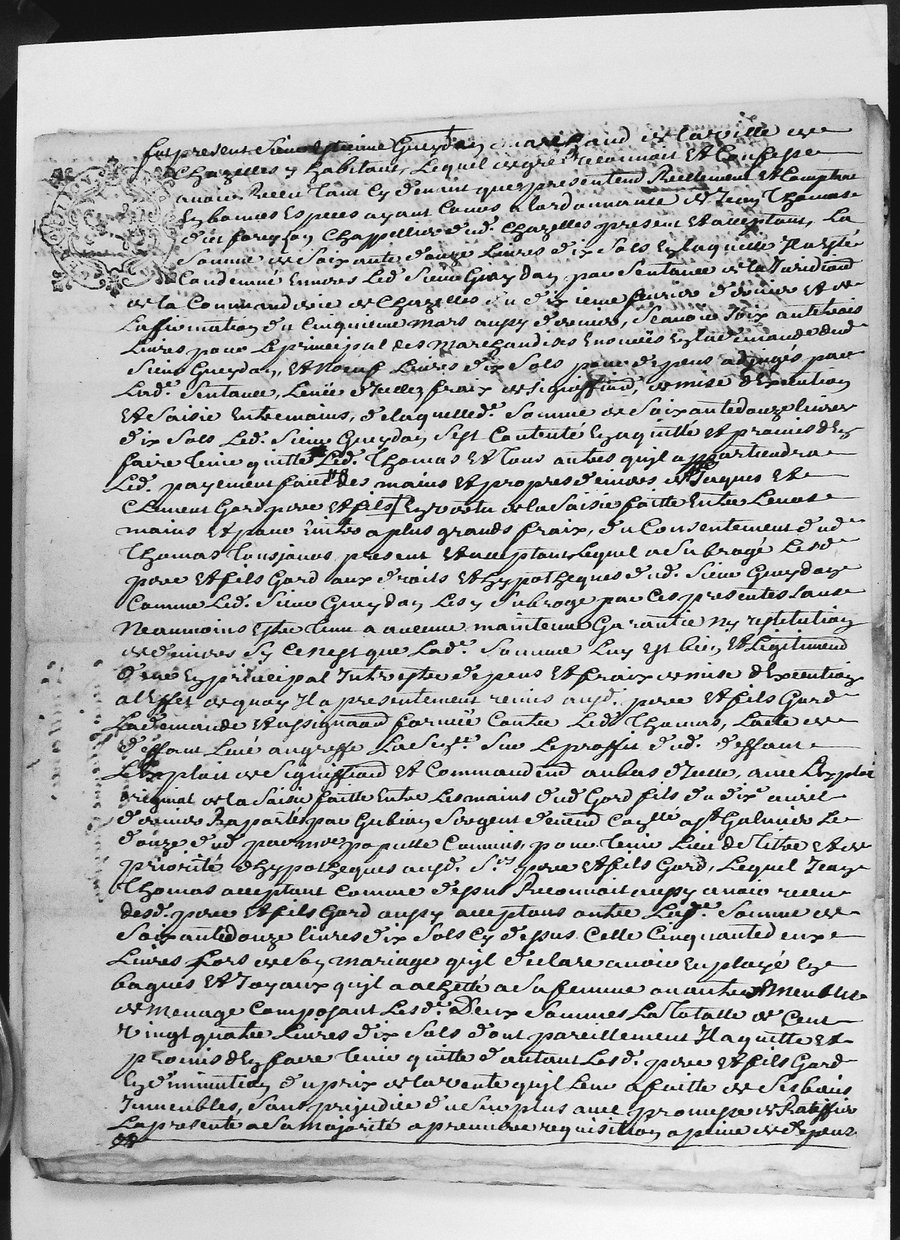 fut present Sieur Estienne Gueydan marchand de la ville de
Chazelles y habitant, Lequel de gré Reconnoit Et Confesse
avoir Receu tant cy devant que presentement Reellement Et Comptant
En bonnes Especes ayant Cours a lordonnance de Jean Thomas
Chappellier dud. Chazelles present Et aceptant, La
Somme de Soixante douze Livres dix Sols En laquelle il a Esté
Condemné Envers Led. Sieur Gueydan par Sentance de la Juridiond
de la Commanderie de Chazelles du dixieme fevrier dernier Et de
Laffirmation du Cinquieme mars aussy dernier, Scavoir Soixante trois
Livres pour Le principal des Marchandises Enoncées En la demande dud.
Sieur Gueydan, Et Neuf Livres dix Sols pour depens adjugés par
Lad. Sentance, Levée dicelle, fraix de Signiffiond, de mise dExecution
Et Saisie Entre mains, de laquelle de. Somme de Soixante douze livres
dix Sols Led. Sieur Gueydan Sest Contenté En a quitté Et promes dEn
faire tenir quitte Led. Thomas Et tous autres quil appartiendra
Led. payement fait des mains Et propres deniers de Jaques Et
Clement Gord pere Et fils En vertu de la Saisie faitte Entre Leurs
mains Et pour Eviter a plus grands fraix, du Consentement dud.
Thomas tousjours present Et aceptant Lequel a Subrogé Lesd.
pere Et fils Gord aux droits Et hypotheques dud. Sieur Gueydan
Comme Led. Sieur Gueydan Les y Subroge par Ces presentes Sans
Neanmoins Estre tenu a aucune maintenue Garantie Ny restitution
de deniers Sy Ce nest que Lad. Somme Luy Est bien Et Legitimend
deue En principal Interestz depens Et fraix de mise dExecution
a lEffet de quoy Il a presentement remis auxd. pere Et fils Gord
La demande Et assignaond formée Contre Led. Thomas, Lacte de
deffaut Levé au greffe La Sent. Sur Le proffit dud. deffaut
LExploit de Signiffiond Et Commandemd au bas dicelle, avec LExploit
original de la Saisie faitte Entre Les mains dud. Gord fils du dix avril
dernier Raportés par Gubian Sergent Controllé a St Galmier Le
douze dud. par Commis, pour tenir Lieu de titre Et de
priorité dhypotheques auxd. Srs. pere Et fils Gord, Lequel Jean
Thomas aceptant Comme dessus Reconnoit aussy avoir receu
desd. pere Et fils Gord aussy aceptans outre Lad. Somme de
Soixante douze livres dix Sols Cy dessus Celle Cinquante deux
Livres Lors de Son mariage quil declare avoir Employé En
bagues Et Joyaux quil a achetté a Sa femme Meubles
de Menage Composant Lesd. Deux Sommes La totalle de Cent
Vingt quatre Livres dix Sols dont pareillement Il a quitté Et
promis dEn faire tenir quitte dautant Lesd. pere Et fils Gord
En diminution du prix de la vente quil Leur a faitte de Ses biens
Immeubles, Sans prejudice du Surplus avec promesse de Ratiffier
La presente a Sa majorité a premiere requisition a peine de depens